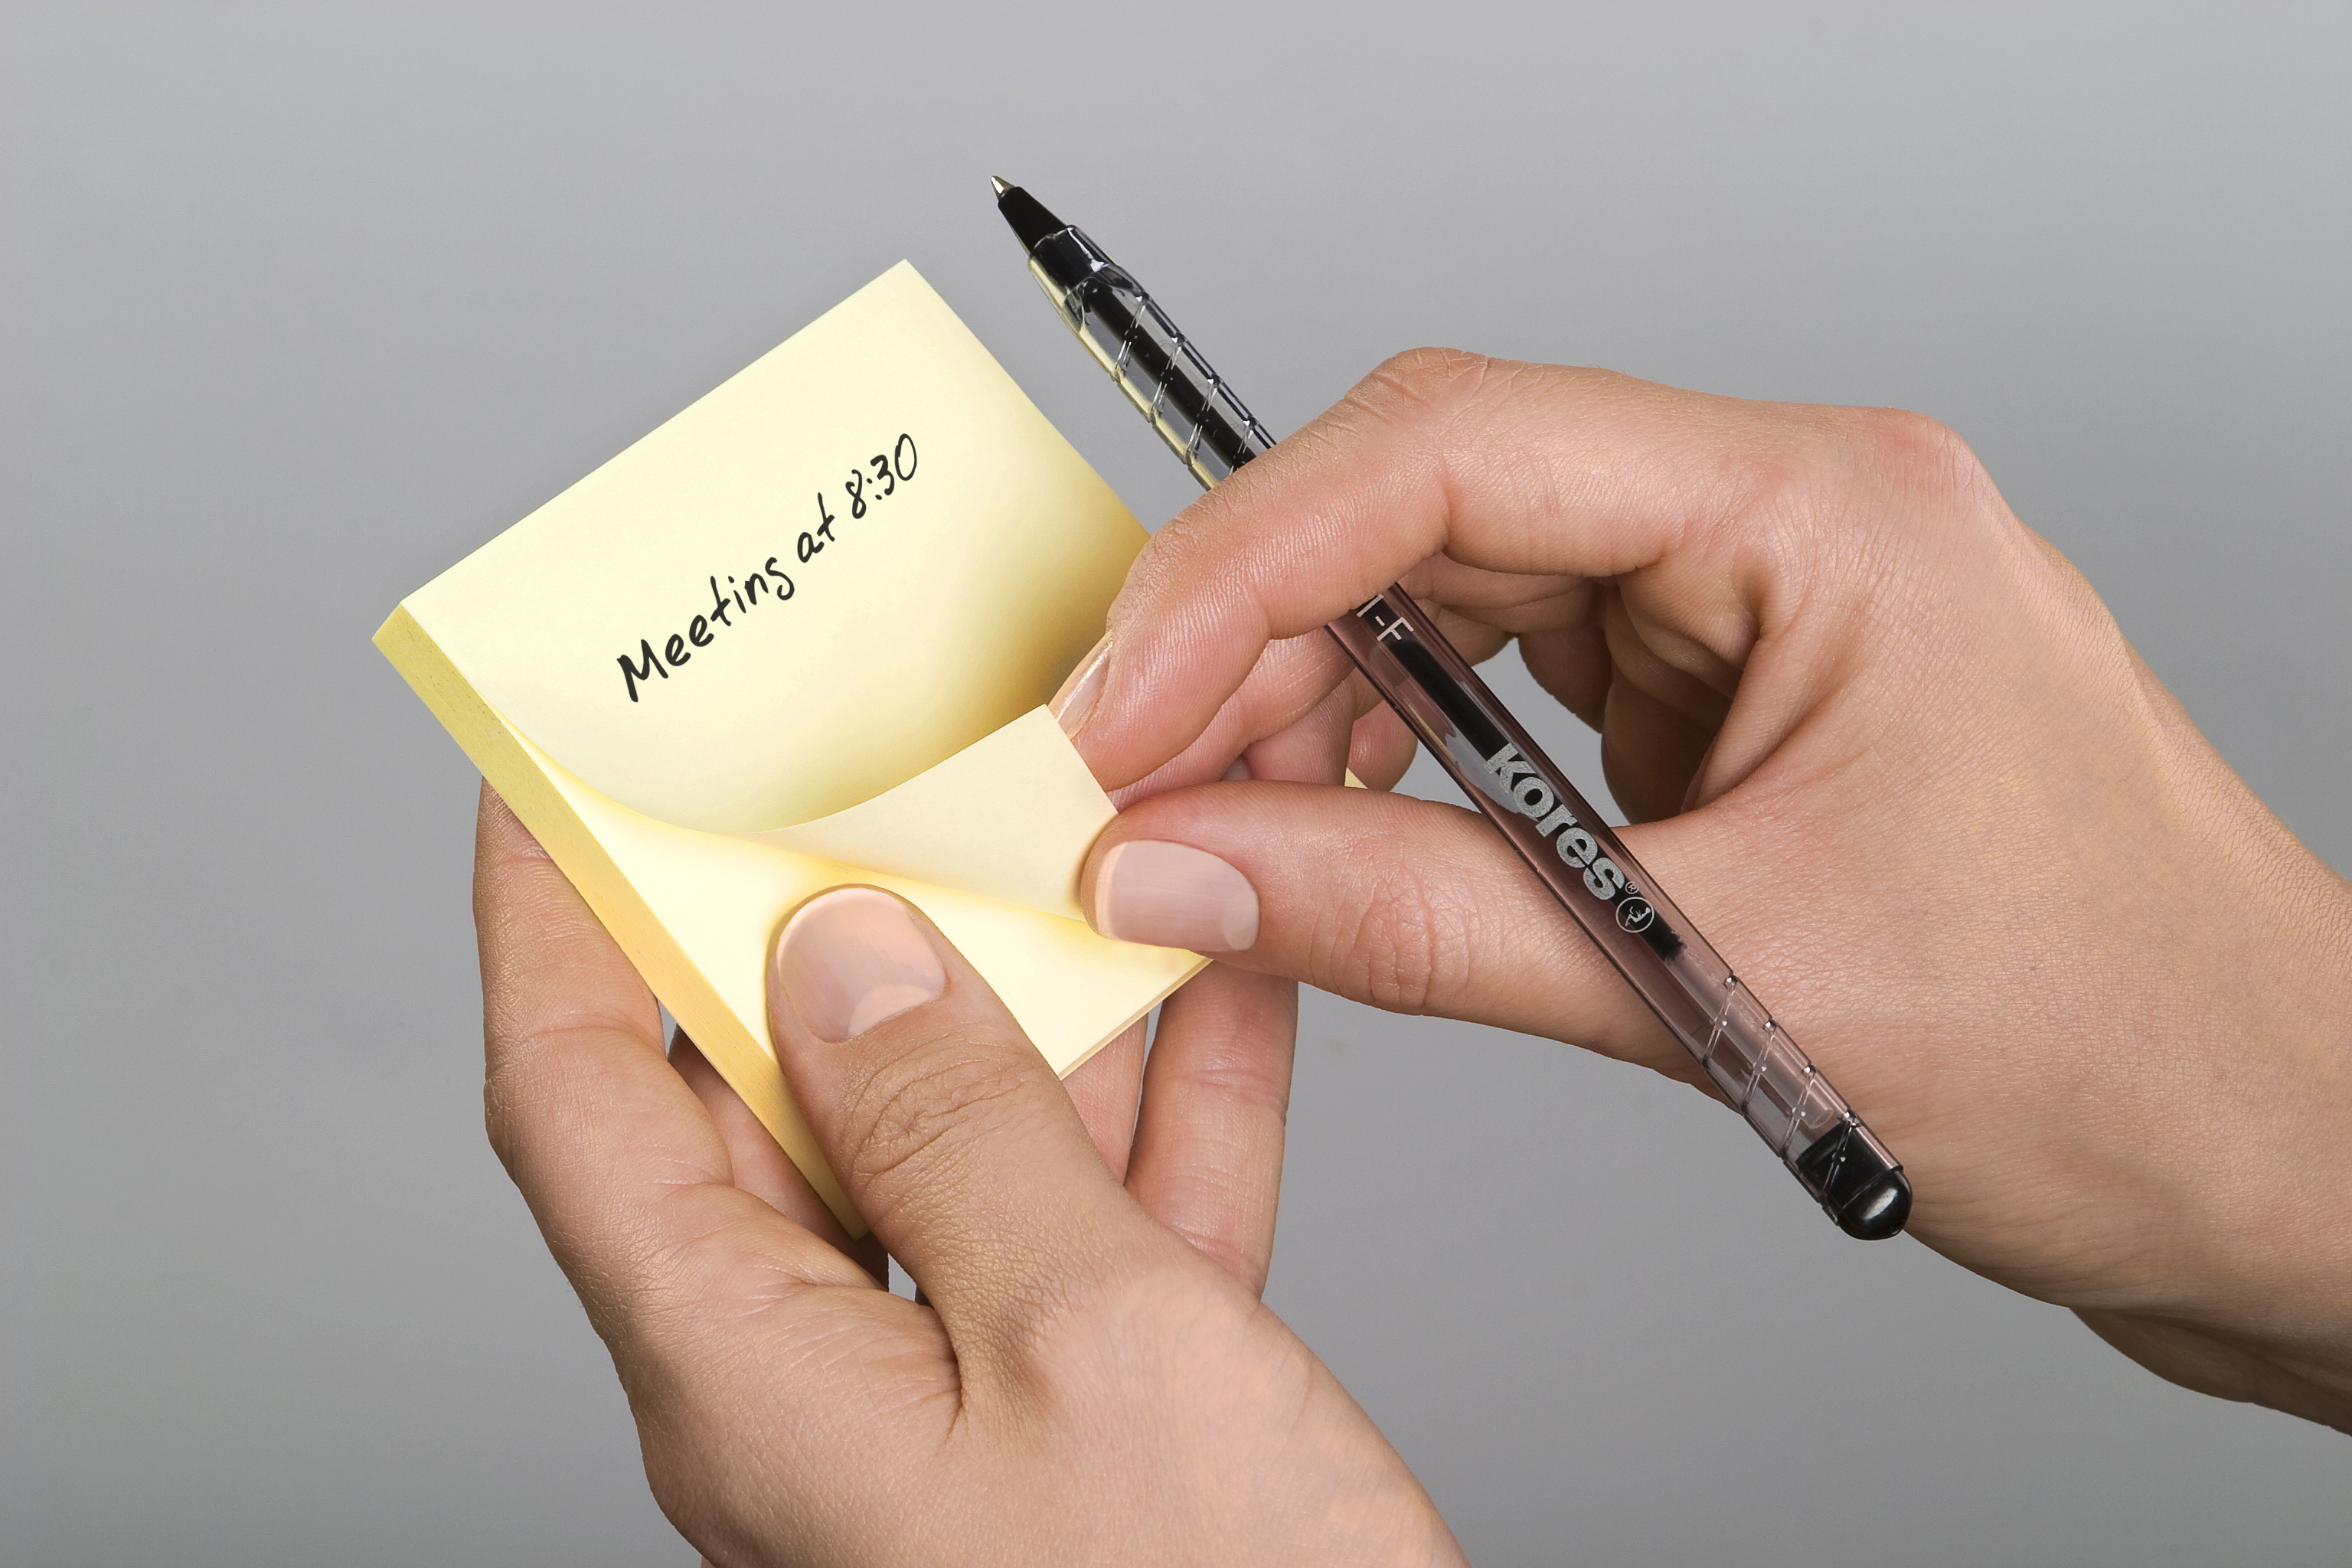 Meeting at 8:30
-F
kores®